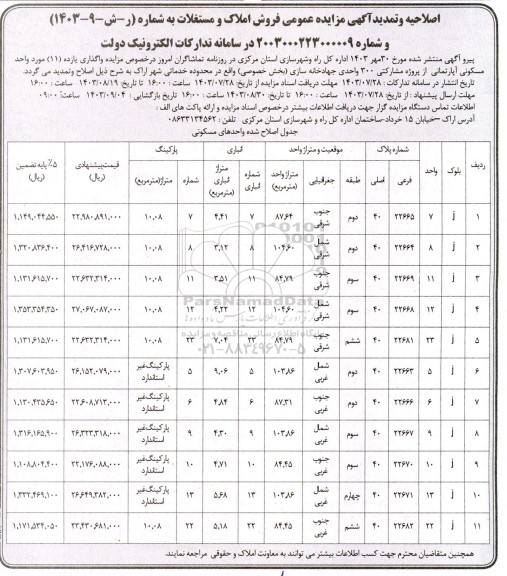 اصلاحیه وتمدیدآگهی مزایده عمومی فروش املاک و مستغلات به شماره (ر-ش-۹-۱۴۰۳)
و شماره ۲۰۰۳۰۰۰۲۲۳۰۰۰۰۰۹ در سامانه تدارکات الکترونیک دولت
پیرو آگهی منتشر شده مورخ ۳۰مهر ۱۴۰۳ اداره کل راه وشهرسازی استان مرکزی در روزنامه تماشاگران امروز درخصوص مزایده واگذاری یازده (۱۱) مورد واحد
مسکونی آپارتمانی از پروژه مشارکتی ۳۰۰ واحدی جهادخانه سازی (بخش خصوصی) واقع در محدوده خدماتی شهر اراک به شرح ذیل اصلاح وتمدید می گردد.
تاریخ انتشار در سامانه تدارکات : ۱۴۰۳/۰۷/۲۸ ساعت : ۱۶:۰۰ مهلت دریافت اسناد مزایده از تاریخ: ۱۴۰۳/۰۷/۲۸ ساعت : ۱۶:۰۰ تا تاریخ ۱۴۰۳/۰۸/۱۹ ساعت : ۱۶:۰۰
مهلت ارسال پیشنهاد : از تاریخ: ۱۴۰۳/۰۷/۲۸ ساعت : ۱۶:۰۰ تا تاریخ: ۱۴۰۳/۰۸/۳۰ ساعت : ۱۶:۰۰ تاریخ بازگشایی : ۱۴۰۳/۰۹/۰۴ ساعت: ۰۹:۰۰
اطلاعات تماس دستگاه مزایده گزار جهت دریافت اطلاعات بیشتر درخصوص اسناد مزایده و ارائه پاکت های الف :
آدرس اراک –خیابان ۱۵ خرداد-ساختمان اداره کل راه و شهرسازی استان مرکزی تلفن : ۰۸۶۳۳۱۳۴۵۶۲
جدول اصلاح شده واحدهای مسکونی
ردیف بلوک واحد شماره پلاک موقعیت و متراژ واحد انباری پارکینگ قیمت پیشنهادی (ریال) ۵٪ پایه تضمین (ریال)
فرعی اصلی طبقه جغرافیایی متراژ واحد (مترمربع) شماره انباری متراژ انباری (مترمربع) شماره متراژ(مترمربع)
۱ J ۷ ۲۲۶۶۵ ۴۰ دوم جنوب شرقی ۸۷.۶۴ ۷ ۴.۴۱ ۷ ۱۰.۰۸ ۲۲,۹۸۰,۸۹۱,۰۰۰ ۱,۱۴۹,۰۴۴,۵۵۰
۲ J ۸ ۲۲۶۶۴ ۴۰ دوم شمال شرقی ۱۰۴.۶۰ ۸ ۳.۱۲ ۸ ۱۰.۰۸ ۲۶,۴۱۶,۷۲۸,۰۰۰ ۱,۳۲۰,۸۳۶,۴۰۰
۳ J ۱۱ ۲۲۶۶۹ ۴۰ سوم جنوب شرقی ۸۴.۷۹ ۱۱ ۳.۵۱ ۱۱ ۱۰.۰۸ ۲۲,۶۳۲,۳۱۴,۰۰۰ ۱,۱۳۱,۶۱۵,۷۰۰
۴ J ۱۲ ۲۲۶۶۸ ۴۰ سوم شمال شرقی ۱۰۴.۶۰ ۱۲ ۴.۲۲ ۱۲ ۱۰.۰۸ ۲۷,۰۶۷,۰۸۷,۰۰۰ ۱,۳۵۳,۳۵۴,۳۵۰
۵ J ۲۳ ۲۲۶۸۱ ۴۰ ششم جنوب شرقی ۸۴.۷۹ ۲۳ ۷.۰۴ ۲۳ ۱۰.۰۸ ۲۲,۶۳۲,۳۱۴,۰۰۰ ۱,۱۳۱,۶۱۵,۷۰۰
۶ J ۵ ۲۲۶۶۳ ۴۰ دوم شمال غربی ۱۰۳.۸۶ ۵ ۹.۰۶ ۵ پارکینگ‌غیر استاندارد ۲۶,۱۵۲,۰۷۹,۰۰۰ ۱,۳۰۷,۶۰۳,۹۵۰
۷ J ۶ ۲۲۶۶۶ ۴۰ دوم جنوب غربی ۸۷.۳۱ ۶ ۴.۸۴ ۶ پارکینگ‌غیر استاندارد ۲۲,۶۰۸,۷۱۳,۰۰۰ ۱,۱۳۰,۴۳۵,۶۵۰
۸ J ۹ ۲۲۶۶۷ ۴۰ سوم شمال غربی ۱۰۳.۸۶ ۹ ۴.۳۰ ۹ پارکینگ‌غیر استاندارد ۲۶,۳۲۳,۳۱۸,۰۰۰ ۱,۳۱۶,۱۶۵,۹۰۰
۹ J ۱۰ ۲۲۶۷۰ ۴۰ سوم جنوب غربی ۸۴.۴۵ ۱۰ ۴.۷۱ ۱۰ پارکینگ‌غیر استاندارد ۲۲,۱۷۶,۰۸۸,۰۰۰ ۱,۱۰۸,۸۰۴,۴۰۰
۱۰ J ۱۳ ۲۲۶۷۱ ۴۰ چهارم شمال غربی ۱۰۳.۸۶ ۱۳ ۵.۶۸ ۱۳ پارکینگ‌غیر استاندارد ۲۶,۶۴۹,۳۸۲,۰۰۰ ۱,۳۳۲,۴۶۹,۱۰۰
۱۱ J ۲۲ ۲۲۶۸۲ ۴۰ ششم جنوب غربی ۸۴.۴۵ ۲۲ ۵.۱۸ ۲۲ ۱۰.۰۸ ۲۳,۴۳۰,۶۸۱,۰۰۰ ۱,۱۷۱,۵۳۴,۰۵۰
ParsNamadData
۰۲۱-۸۸۳۴۹۶۷۰-۵
همچنین متقاضیان محترم جهت کسب اطلاعات بیشتر می توانند به معاونت املاک و حقوقی مراجعه نمایند.